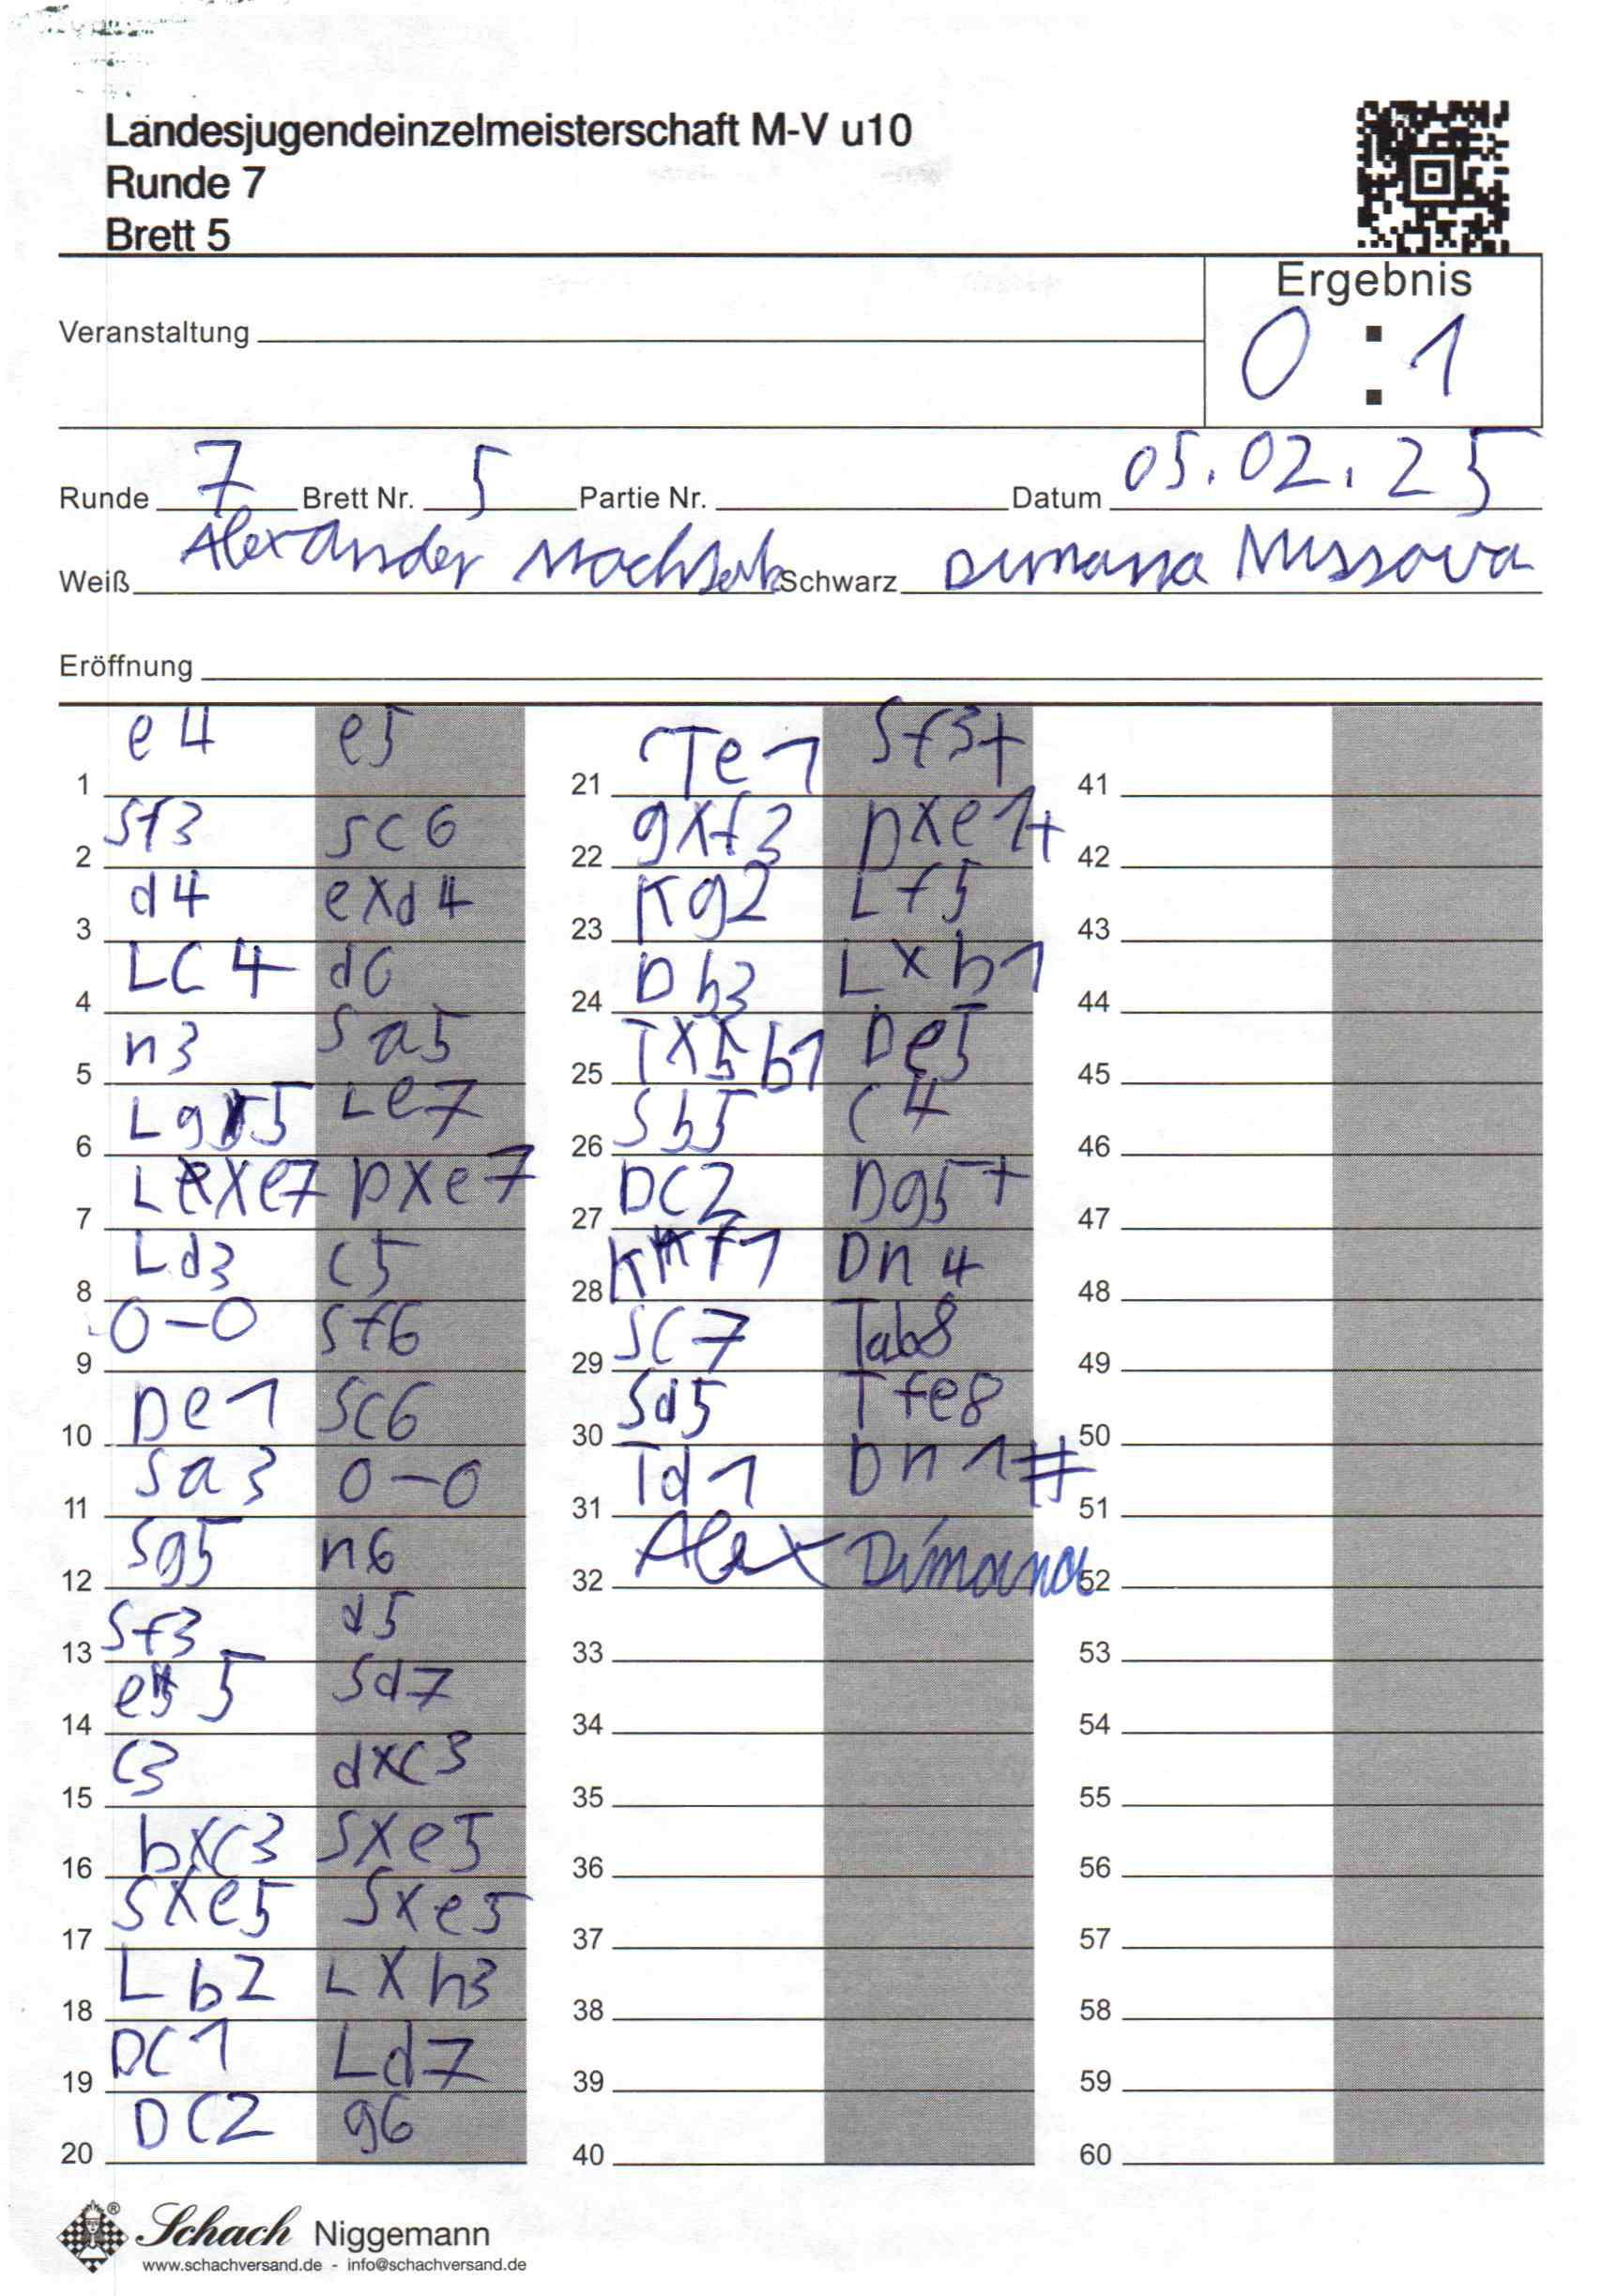 Landesjugendeinzelmeisterschaft M-V u10
Runde 7
Brett 5
Ergebnis
0 : 1
Veranstaltung
Runde 7 Brett Nr. 5 Partie Nr. Datum 05.02.25
Weiß Alexander Schwarz Dimana
Eröffnung
1 e4 e5
2 Sf3 Sc6
3 d4 exd4
4 LC4 d6
5 h3 Sa5
6 Lg5 Le7
7 Lxe7 Dxe7
8 Ld3 c5
9 0-0 Sf6
10 De1 Sc6
11 Sa3 0-0
12 Sg5 h6
13 Sf3 d5
14 e5 Sd7
15 c3 dxc3
16 bxc3 Sxe5
17 Sxe5 Sxe5
18 Lb2 Lxh3
19 DC1 Ld7
20 DC2 g6
21 Te1 Sf3+
22 gxf3 Dxe1+
23 Kg2 Lf5
24 Db3 Lxb1
25 Txb1 De5
26 Sb5 c4
27 DC2 Dg5+
28 Kf1 Dh4
29 SC7 Tab8
30 Sd5 Tfe8
31 Td1 Dh1#
32 Alex Dimana
33
34
35
36
37
38
39
40
41
42
43
44
45
46
47
48
49
50
51
52
53
54
55
56
57
58
59
60
® Schach Niggemann
www.schachversand.de - info@schachversand.de